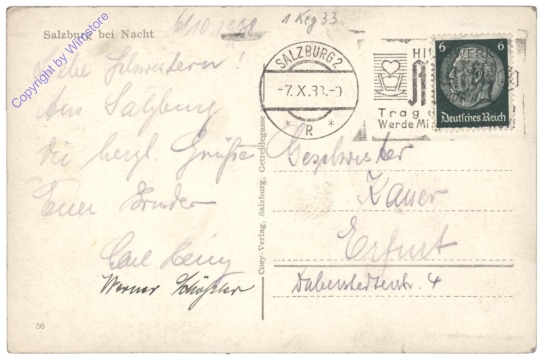 6/10 1938
1 Reg 33
Salzburg bei Nacht
SALZBURG 2
-7.X.38.-0
* R *
HI
Trag
Werde Mi
6 6
Deutsches Reich
Copyright by Winstore
Liebe Schwestern!
Aus Salzburg
die herzl. Grüße
Euer Bruder
Carl
Werner
56
Cosy-Verlag, Salzburg, Getreidegasse
Geschwister
Kaiser
Erfurt
Daberstedterstr. 4